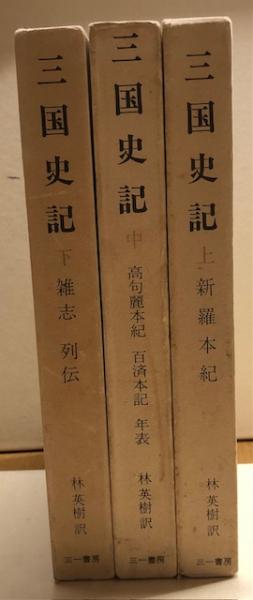 三国史記 上 新羅本紀 林英樹訳 三一書房
三国史記 中 高句麗本紀 百済本記 年表 林英樹訳 三一書房
三国史記 下 雑志 列伝 林英樹訳 三一書房